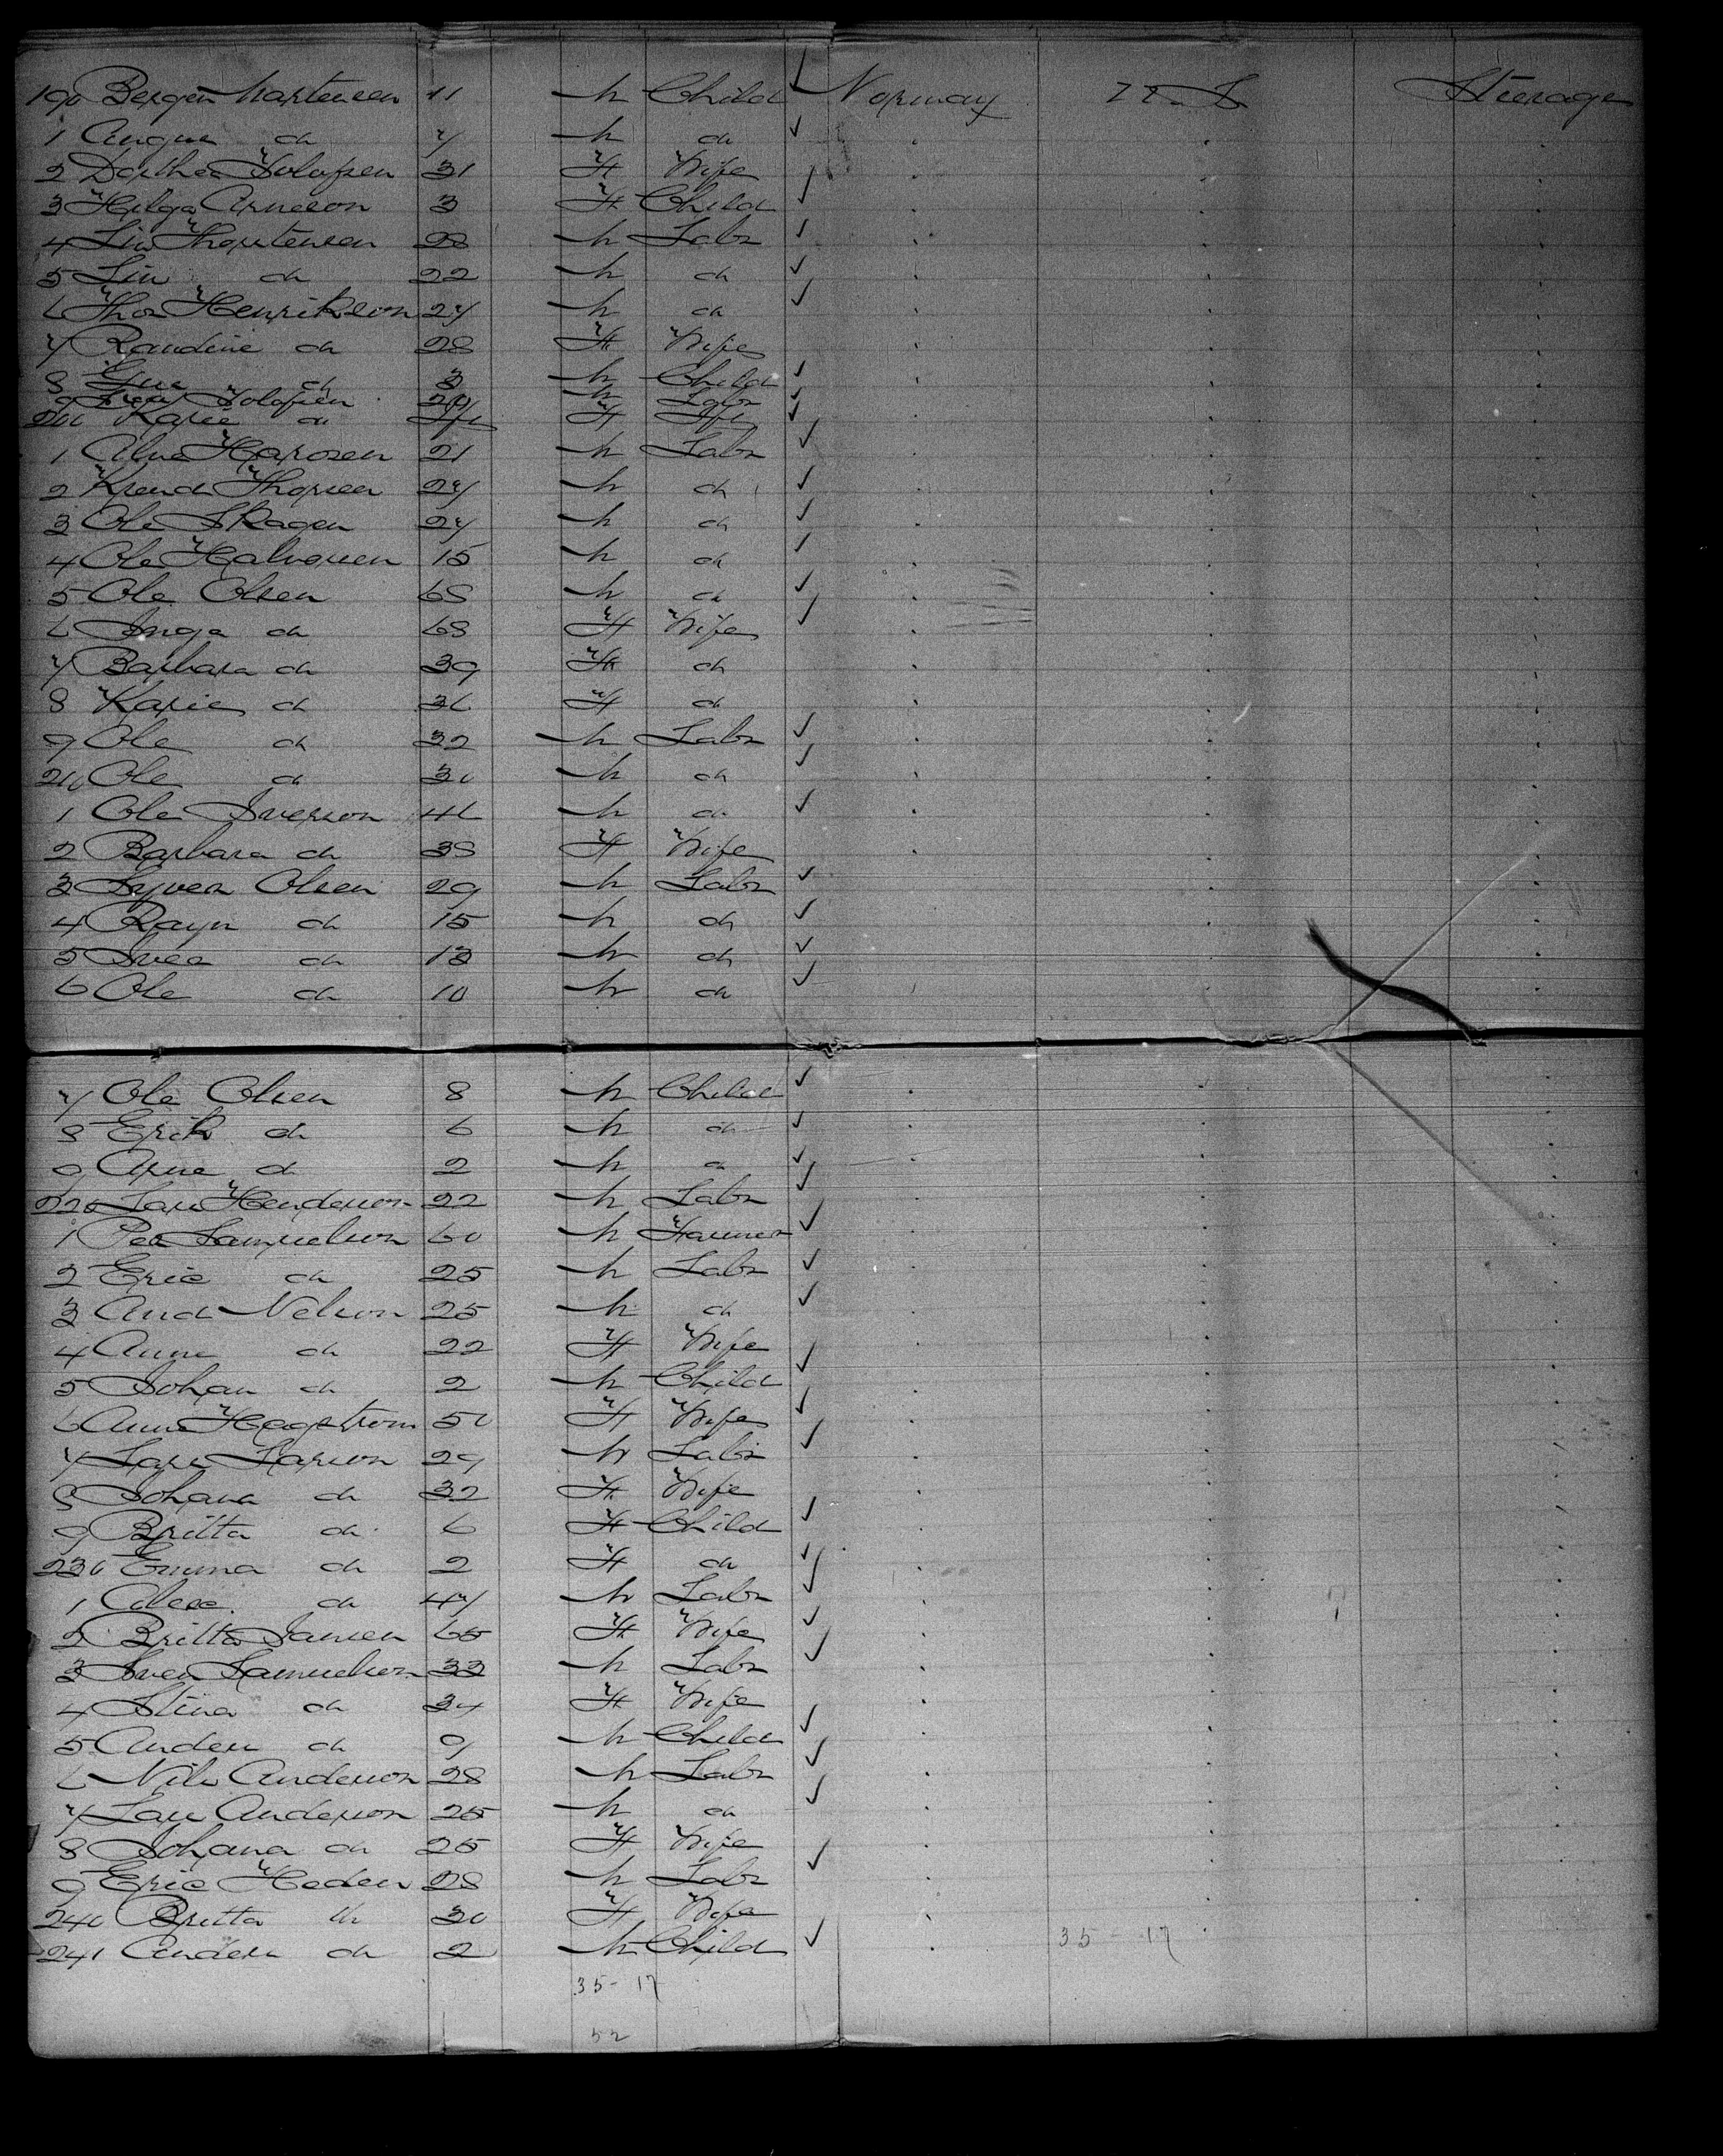 190 Bergen Martensen 11 M Child Norway U.S. Steerage
1 do 7 M do
2 Dorthea Tolofsen 31 F Wife
3 Helga Arneson 3 F Child
4 Thorstensen 28 M Labr
5 do 22 M do
6 Thor Henrikson 27 M do
7 Randine do 28 F Wife
8 do 3 M Child
9 Tolofsen M Labr
200 Karie do F
1 21 M Labr
2 Thorsen 27 M do
3 Ole Skagen 27 M do
4 Ole Halvorsen 15 M do
5 Ole Olsen 68 M do
6 Inga do 68 F Wife
7 Barbara do 39 F do
8 Karie do 36 F do
9 Ole do 32 M Labr
210 Ole do 30 M do
1 Ole Iverson 46 M do
2 Barbara do 38 F Wife
3 Syver Olsen 29 M Labr
4 do 15 M do
5 do 13 M do
6 Ole do 10 M do
7 Ole Olsen 8 M Child
8 Erik do 6 M do
9 Arne do 2 M do
220 Lars Henderson 22 M Labr
1 Per Samuelson 60 M Farmer
2 Eric do 25 M Labr
3 And Nelson 25 M do
4 Anna do 22 F Wife
5 Johan do 2 M Child
6 Anna Hagstrom 50 F Wife
7 Lars Larson 29 M Labr
8 Johana do 32 F Wife
9 Britta do 6 F Child
230 Emma do 2 F do
1 do 47 M Labr
2 Britta Jansen 65 F Wife
3 Sven Samuelson 33 M Labr
4 Stina do 34 F Wife
5 Anders do 9 M Child
6 Nils Anderson 28 M Labr
7 Lars Anderson 25 M do
8 Johana do 25 F Wife
9 Eric Heden 28 M Labr
240 Britta do 30 F Wife
241 Anders do 2 M Child 35 - 17
35 - 17
52